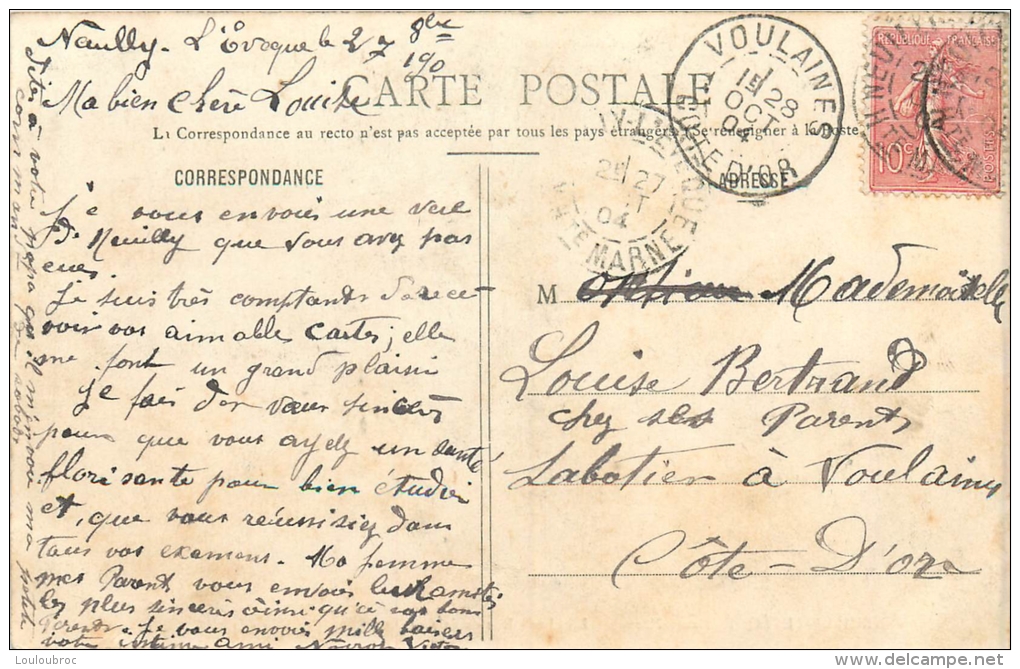 Neuilly - L'Evêque le 27 8bre
190
Ma bien chère Louise
CARTE POSTALE
La Correspondance au recto n'est pas acceptée par tous les pays étrangers. (Se renseigner à la Poste
CORRESPONDANCE
ADRESSE
Je vous envois une vue
De Neuilly que vous avez pas
eues.
Je suis très comptants de rece
voir vos aimable cartes; elle
me font un grand plaisir
Je fais des vœux sincères
pour que vous ayez un santé
florisante pour bien étudier
et, que vous réussisiez dans
tous vos examens. Ma femme
mes Parents vous envois
les plus sincères ainsi qu'à vos bons
Parents. Je vous envois mille baisers
votre intime ami
Dites à votre papa qu'il m'envoi ma petite
M Mademoiselle
Louise Bertrand
chez ses Parents
Sabotier à Voulaines
Côte-D'or
VOULAINES
1E 28
OCT
04
COTE D'OR
LY-L'EVEQUE
27
04
HTE MARNE
REPUBLIQUE FRANÇAISE
10c
POSTES
© Louloubroc
www.delcampe.net